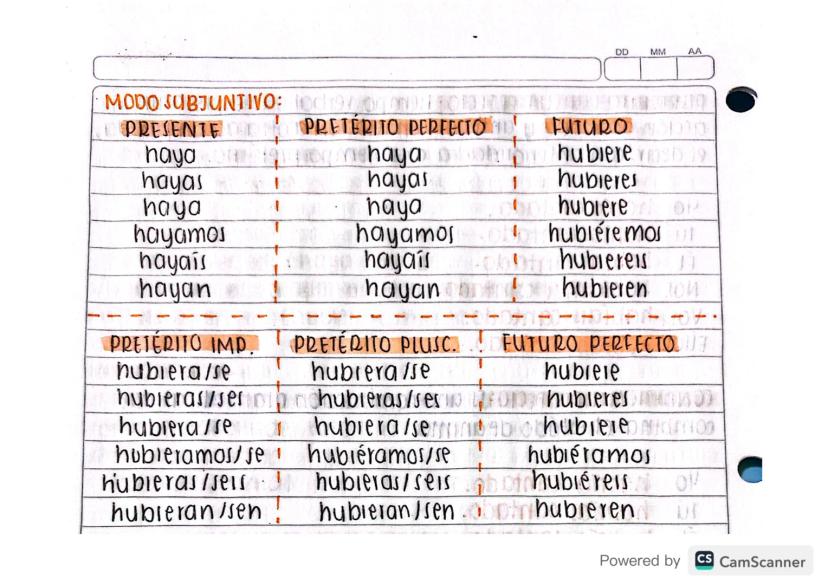 DD MM AA
MODO SUBJUNTIVO:
PRESENTE PRETÉRITO PERFECTO FUTURO
haya haya hubiere
hayas hayas hubieres
haya haya hubiere
hayamos hayamos hubiéremos
hayaís hayaís hubiereis
hayan hayan hubieren
PRETÉRITO IMP. PRETÉRITO PLUSC. FUTURO PERFECTO
hubiera/se hubiera/se hubiere
hubieras/ses hubieras/ses hubieres
hubiera/se hubiera/se hubiere
hubieramos/se hubiéramos/se hubiéramos
hubieras/seis hubieras/seis hubiéreis
hubieran/sen hubieran/sen hubieren
Powered by CS CamScanner